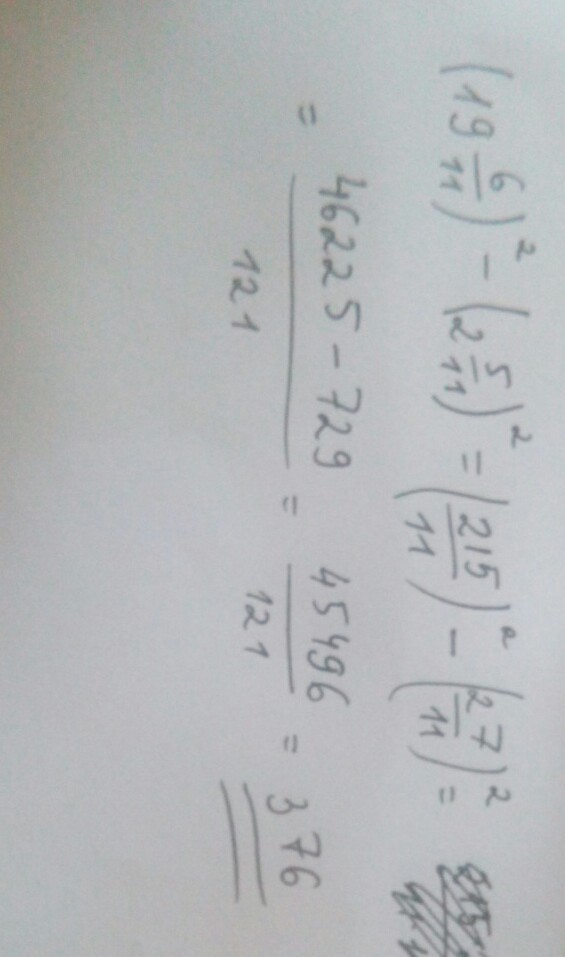 (19 6/11)² - (2 5/11)² = (215/11)² - (27/11)² =
= 46225 - 729/121 = 45496/121 = 376